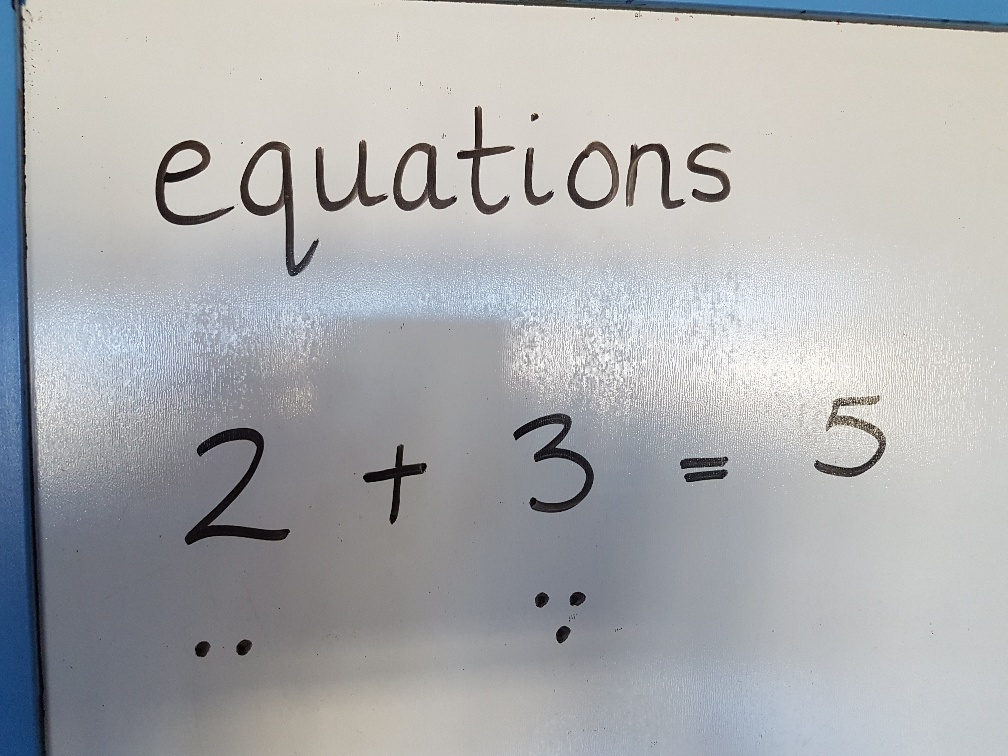 equations
2 + 3 = 5